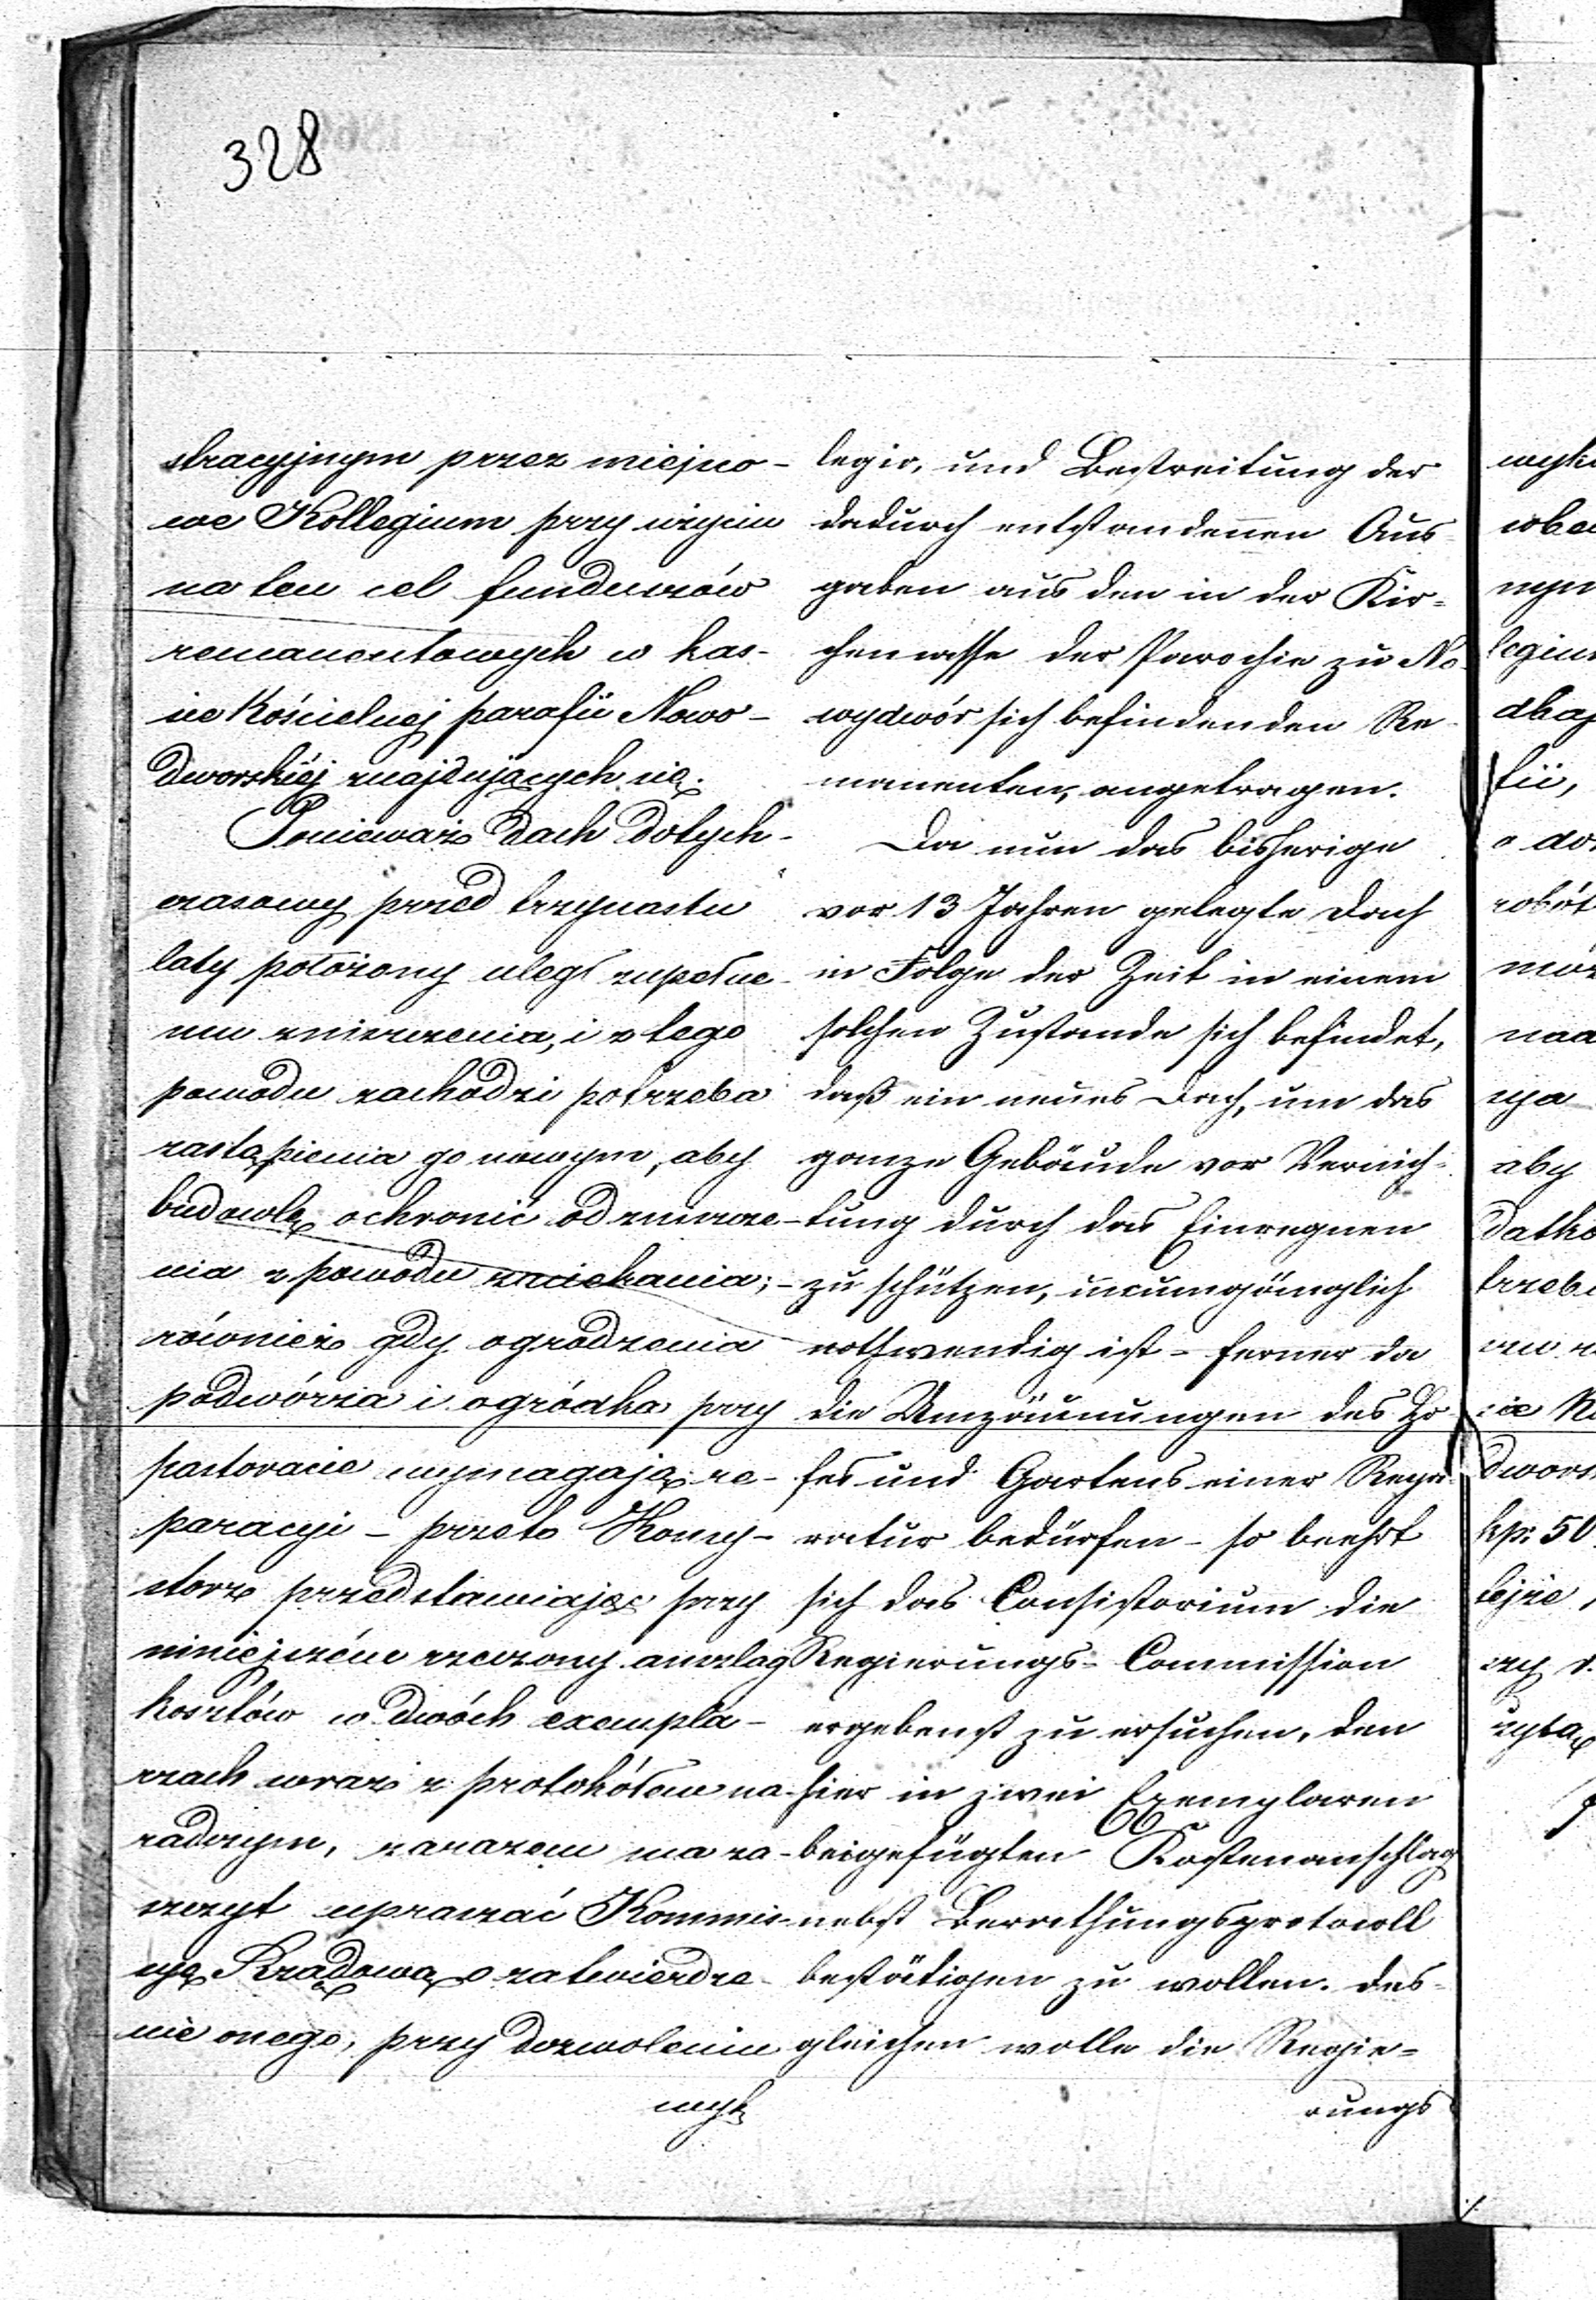 328
stracyjnym przez miejsco-
we Kollegium przy użyciu
na ten cel funduszów
remanentowych w kas-
sie Kościelnej parafii Nowo-
dworskiéj znajdujących się.
Ponieważ dach dotych-
czasowy przed trzynastu
laty położony uległ zupełne-
mu zniszczenia, i z tego
powodu zachodzi potrzeba
zastąpienia go nowym, aby
budowlę ochronić od zniszcze-
nia z powodu zaciekania;-
również gdy ogrodzenia
podwórza i ogródka przy
pastoracie wymagają re-
paracyi - przeto Konsy-
storz przedstawiając przy
niniejszém rzeczony anszlag
kosztów w dwóch exempla-
rzach wraz z protokółem na-
radczym, zarazem ma za-
szczyt upraszać Kommis-
syę Rządową o zatwierdze-
nie onego, przy dozwoleniu
wyk
legio, und Bestreitung der
dadurch entstandenen Aus-
gaben aus den in der Kir-
chencasse der Parochie zu No-
wydwór sich befindenden Re-
manenten, angetragen.
Da nun das bisherige
vor 13 Jahren gelegte Dach
in Folge der Zeit in einem
solchen Zustande sich befindet,
daß ein neues Dach, um das
ganze Gebäude vor Vernich-
tung durch das Einregnen
zu schützen, unumgänglich
nothwendig ist - ferner da
die Umzäunungen des Ho-
fes und Gartens einer Repa-
ratur bedürfen - so beehrt
sich das Consistorium die
Regierungs-Commission
ergebenst zu ersuchen, den
hier in zwei Exemplaren
beigefügten Kostenanschlag
nebst Berathungsprotocoll
bestätigen zu wollen. Des-
gleichen wolle die Regie-
rungs